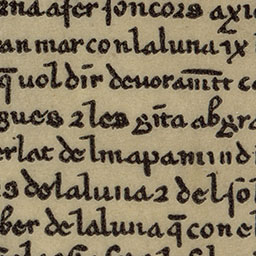 ana afer son cors axi
an mar con la luna ix
q̄ uol dir deuoramēt c
gues ⁊ les gita abgra
erlat del mapamundi
s de la luna ⁊ del sol
ber de la luna q̄ con el